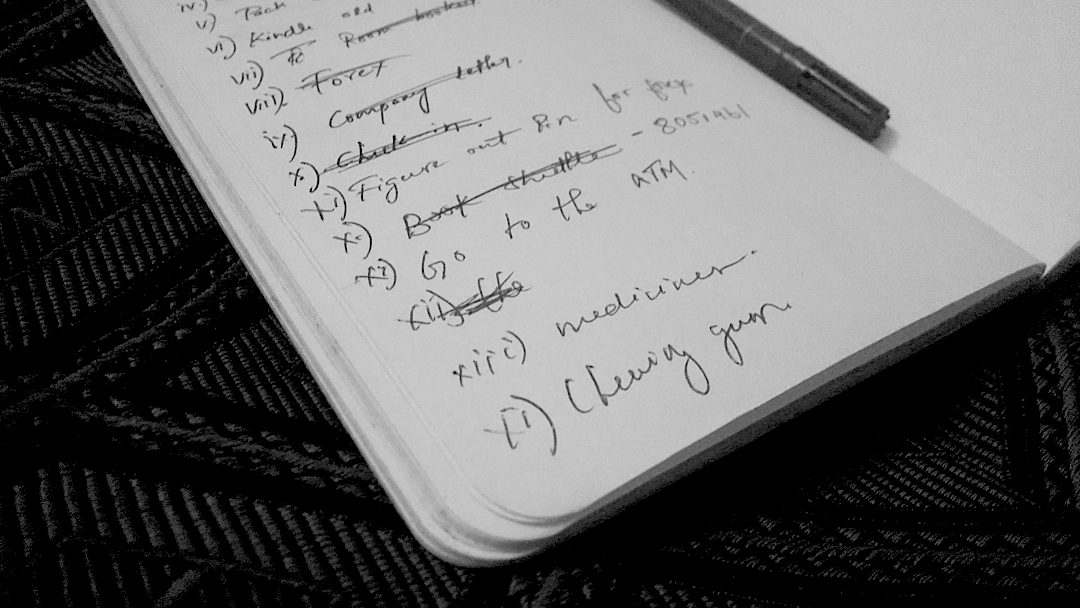 iv)
v) Pack
vi) Kindle old
vii) Room booking
viii) Forex
ix) Company letter.
x) Check in.
xi) Figure out Pin for forex
x) Book shuttle - 8051461
xi) Go to the ATM.
xii)
xiii) medicines.
xi) Chewing gum.